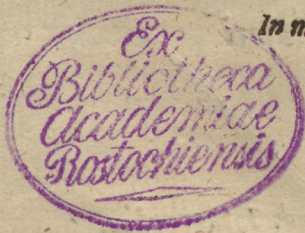 In m
Ex
Bibliotheca
Academiae
Rostochiensis.